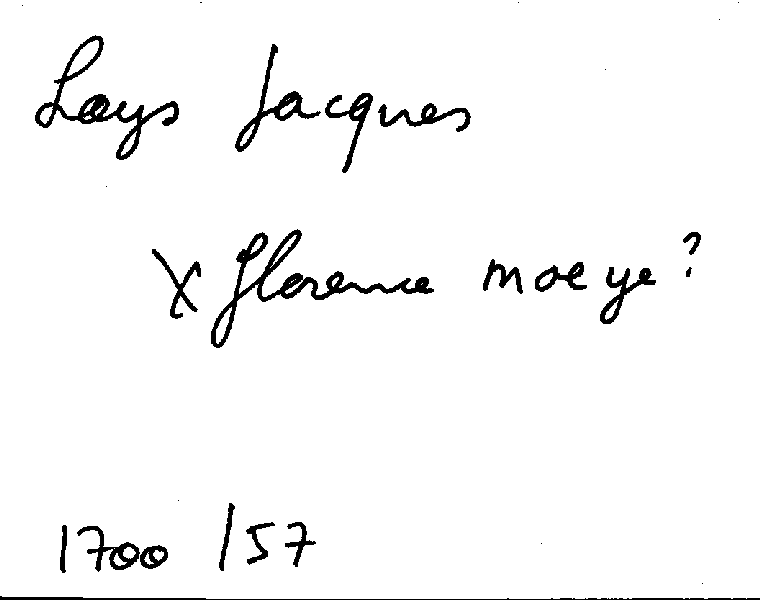 Loys Jacques
X Florence moeye ?
1700 / 57